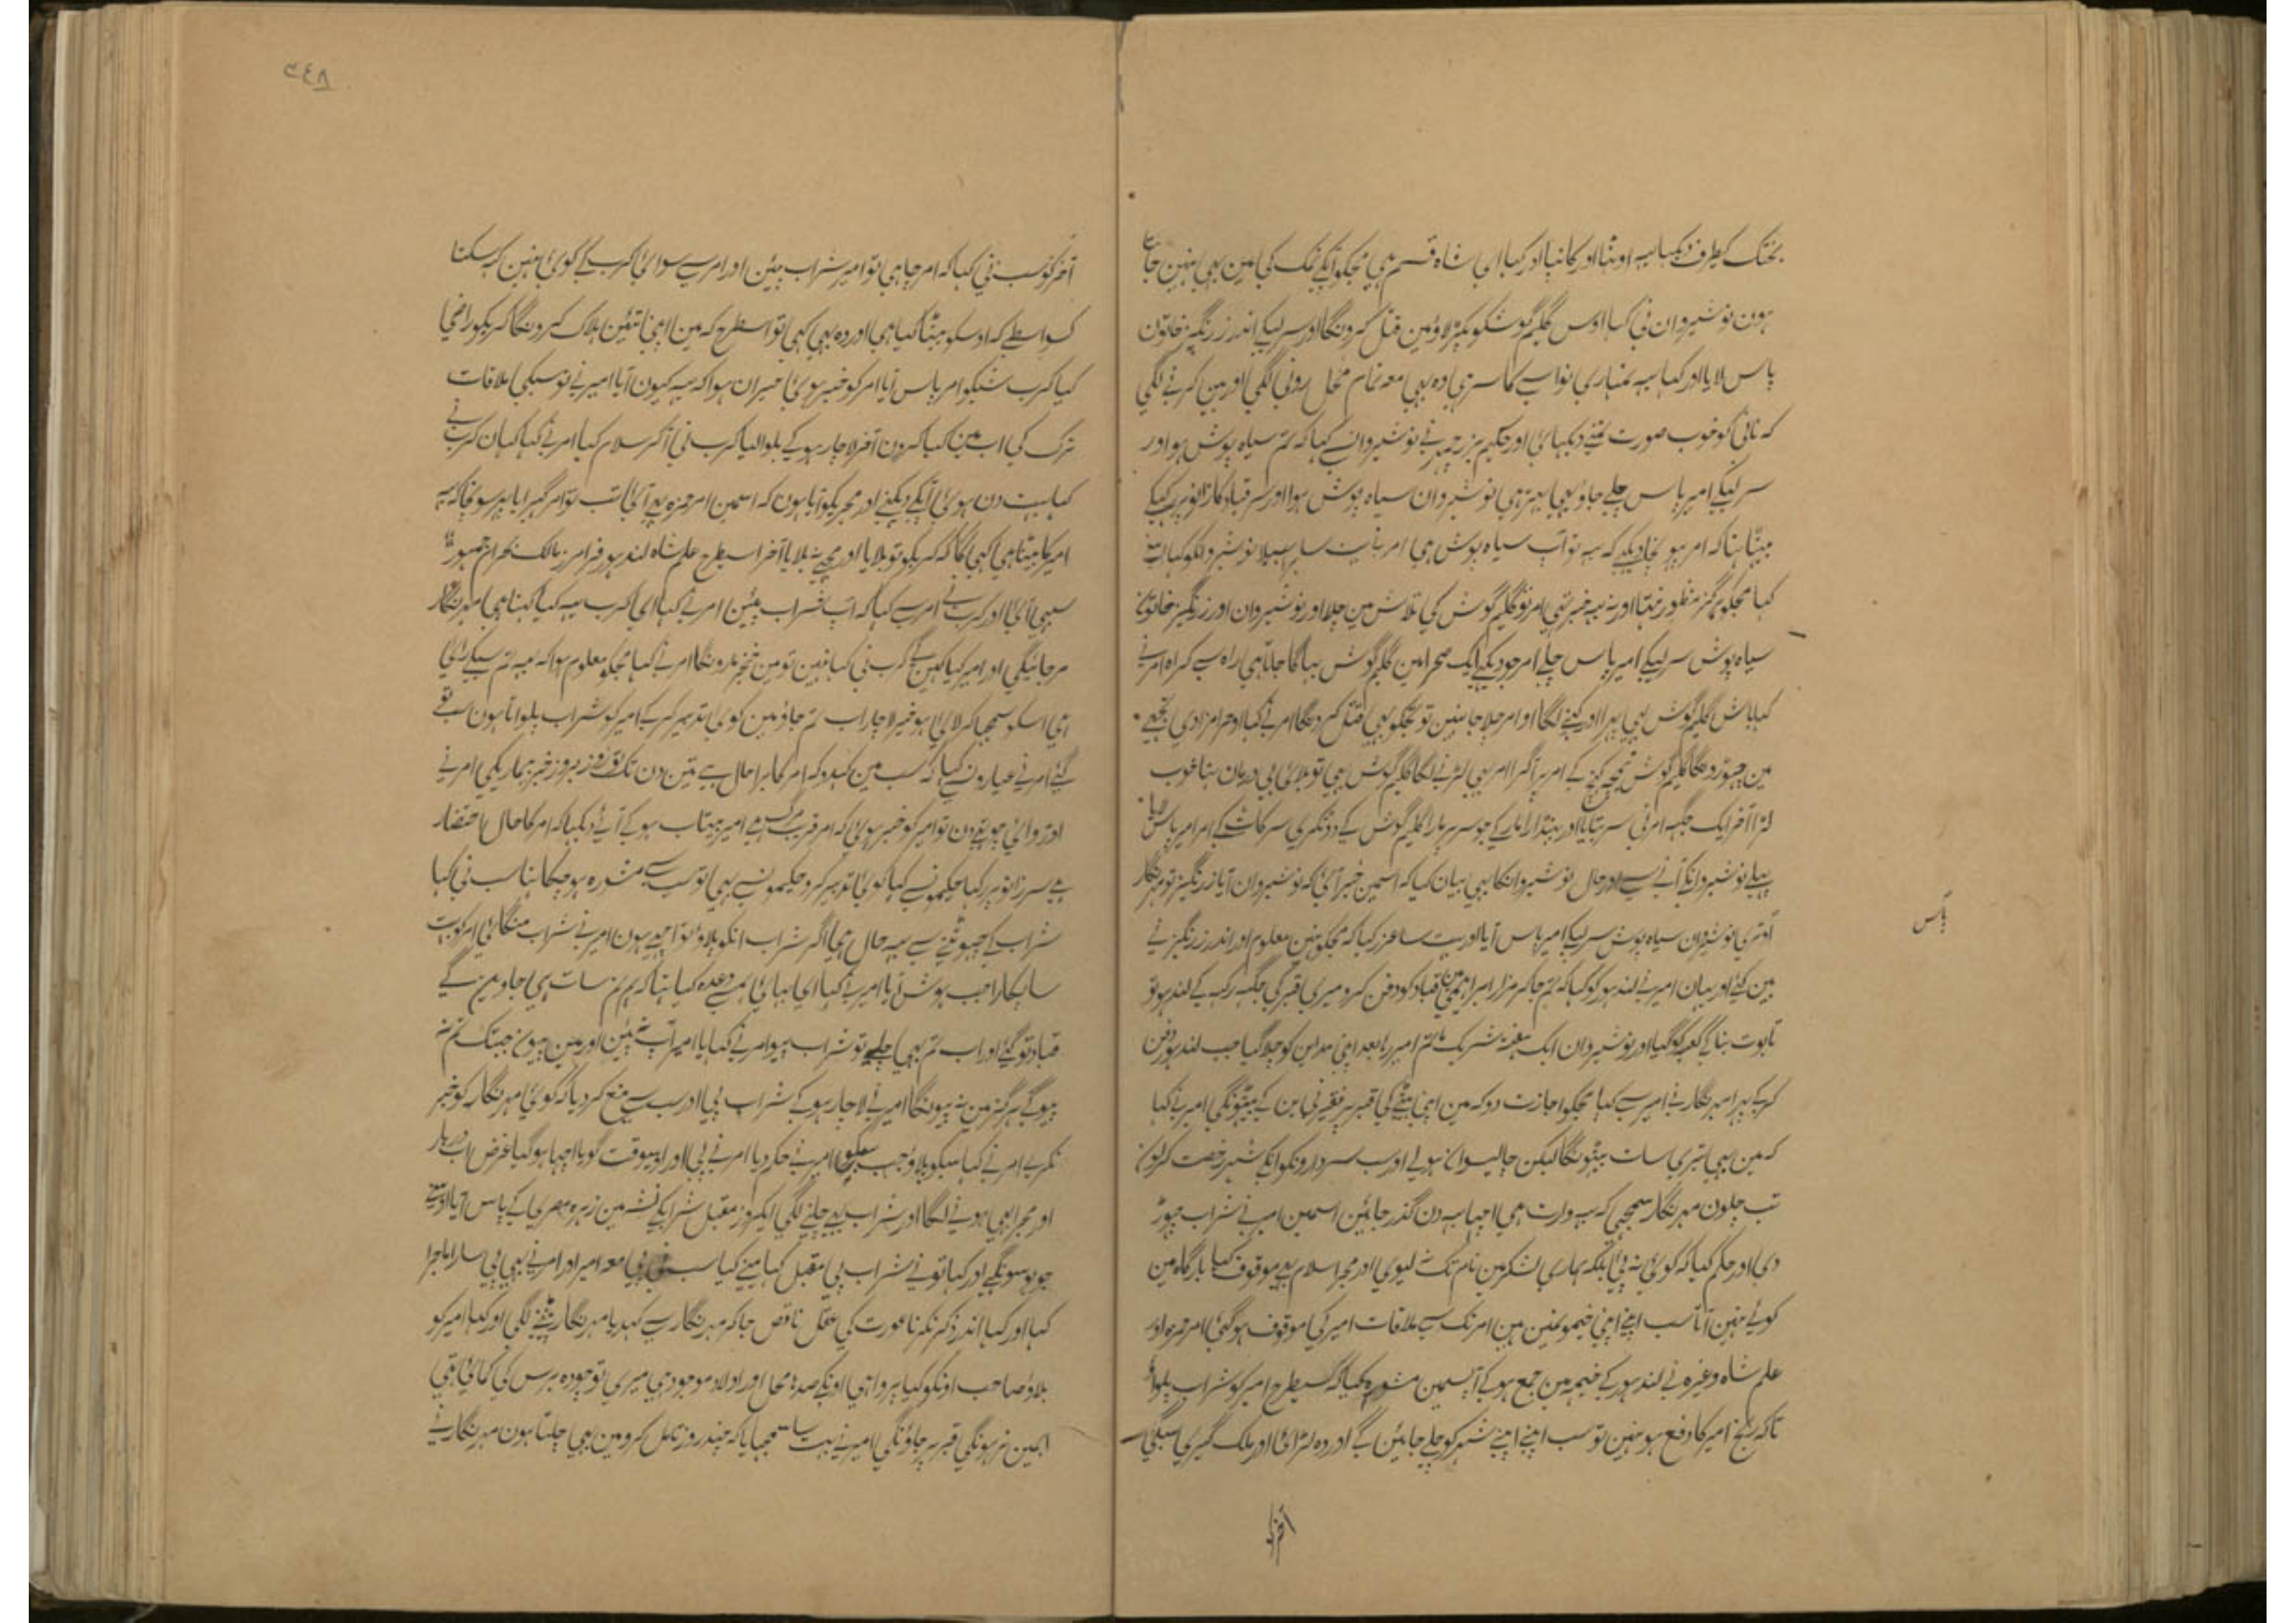 بختک کیطرف دیکہا یہ اوٹہا اور کانپا اور کہا ای شاہ قسم ہی مجکو آپکے نمک کی مین بہی نہین جانتا
ہون نوشیروان نی کہا اوس گلیم گوشکو پکڑ لاؤ مین قتل کرونگا اور سر لیکے اندر زرنگیز خاتون
پاس لایا اور کہا یہ تمہاری نواسے کا سر ہی وہ بہی معہ تمام محل رونی لگی اور بین کرنے لگی
کہ نانی کو خوب صورت تمنے دیکہائی اور حکیم بزرجمہر نے نوشیروان سے کہا کہ تم سیاہ پوش ہو اور
سر لیکے امیر پاس چلے جاؤ یہی بہتر ہی نوشیروان سیاہ پوش ہوا اور سر قباد کا زانو پر لیکے
بیٹہا تہا کہ امر پہونچا دیکہے کہ یہ تو آپ سیاہ پوش ہی امر نے نوشیروانکو کہا اوسنے
کہا مجکو ہرگز منظور نتہا اور نہ یہ خبر تہی امر تو گلیم گوش کی تلاش مین چلا اور نوشیروان اور زرنگیز خاتون
سیاہ پوش سر لیکے امیر پاس چلے امر جو دیکہے ایک صحرا مین گلیم گوش بہاگا جاتا ہی راہ سے کراہ امر نے
کہا باش گلیم گوش بہی پہرا اور کہنے لگا او امر چلا جا نہین تو تجکو بہی قتل کرونگا امر نے کہا او حرامزادی تجہے
مین چہوڑونگا گلیم گوش تیغہ کہنچ کے امر پر آ گرا امر بہی لڑنے لگا گلیم گوش بہی تو بلائی بی درمان تہا خوب
لڑا آخر ایک جگہہ امر نی سر بتایا اور پینترا مار کے جو سر پر مارا گلیم گوش کے دو ٹکری سر کاٹ کے امر امیر پاس لایا
پہلے نوشیروانکے آنے سے اور حال نوشیروانکا بہی بیان کیا کہ اسمین خبر آئی کہ نوشیروان آیا زرنگیز تو مہرنگار
اوتری نوشیروان سیاہ پوش سر لیکے امیر پاس آیا اور بہت سا عذر کیا کہ مجکو نہین معلوم اور اندر زرنگیز نے
بین کئے اور یہان امیر نے لندہور کو کہا کہ تم جا کر مزار ابراہیم مین قباد کو دفن کرو میری قبر کی جگہہ رکہہ کے لندہور تو
تابوت بنا کے کعبہ کو گیا اور نوشیروان ایک ہفتہ شریک ماتم امیر رہا بعد اپنی مداین کو چلا گیا جب لندہور دفن
کرکے پہرا مہرنگار نے امیر سے کہا مجکو اجازت دو کہ مین اپنی بیٹے کی قبر پر فقیرنی بن کے بیٹہونگی امیر نے کہا
کہ مین بہی تیری سات بیٹہونگا لیکن چالیسوان ہولے اور سب سردارونکو اونکے شہر رخصت کرلون
تب چلون مہرنگار سمجہی کہ یہ وارث ہی اچہا یہ دن گذر جائین اسمین امیر نے شراب چہوڑ
دی اور حکم کیا کہ کوئی نہ پی بلکہ ہماری لشکر مین نام تک نلیوی اور مجرا سلام بہی موقوف کیا بارگاہ مین
کوئے نہین آتا سب اپنے اپنی خیمونمین ہین امر تک سے ملاقات امیر کی موقوف ہوگئی امر حمزہ اور
علم شاہ وغیرہ نے لندہور کے خیمہ مین جمع ہو کے آپسمین مشورہ کیا کہ کسیطرح امیر کو شراب پلواؤ
تاکہ رنج امیر کا دفع ہو نہین تو سب اپنے اپنے شہر کو چلے جائین گے اور وہ لڑائی اور ملک گیری سبکی
پاس
آخر کو
۳۴۸
آخر کو سب نی کہا کہ امر چاہی تو امیر شراب پئین اور امر سے سوائی کرب کے کوئی نہین کہہ سکتا
کسواسطے کہ اوسکو بیٹا کیا ہی اور وہ بہی کہی تو اسطرح کہ مین اپنا تئین ہلاک کرونگا کربکو راضی
کیا کرب شبکو امر پاس آیا امر کو خبر ہوئی حیران ہوا کہ یہ کیون آیا امیر نے تو سبکی ملاقات
ترک کی اب مین کیا کرون آخر لاچار ہو کے بلوالیا کرب نی آ کر سلام کیا امر نے کہا کہان کرب نے
کہا بہت دن ہوئی آپکے دیکہنے اور مجریکو آیا ہون کہ اسمین امر حمزہ بہی آئی تب تو امر گہبرایا پہر سونچا کہ یہ
امیر کا بیٹا ہی کہی گا کہ کربکو تو بلایا اور مجہے نہ بلایا آخر اسیطرح علم شاہ لندہور فرامرز مالک بہرام جمہور
سبہی آئی اور کرب نے امر سے کہا کہ آپ شراب پئین امر نے کہا ای کرب یہ کیا کہتا ہی مہرنگار
مرجائیگی اور امیر کیا کہین گے کرب نی کہا نہین تو مین خنجر مارونگا امر نے کہا مجکو معلوم ہوا کہ یہ تم سبکی رائی
ہی اسکو سمجہا کر لائی ہو خیر لاچار اب تم جاؤ مین کوئی تدبیر کرکے امیر کو شراب پلواتا ہون سب تو
گئے امر نے عیارونسے کہا کہ سب مین کہدو کہ امر کا برا حال ہے تین دن تک تو روز بروز خبر بیماریکی امر نے
اوڑوائی چوتہے دن تو امیر کو خبر ہوئی کہ امر قریب مرگ ہے امیر بیتاب ہو کے آئے دیکہا کہ امر کا حال احتضار
ہے سر زانو پر رکہا حکیمونسے کہا کوئی تدبیر کرو حکیمونسے بہی تو سب سے مشورہ ہو چکا تہا سب نی کہا
شراب کے چہوٹنے سے یہ حال ہی اگر شراب انکو پلاؤ تو اچہے ہون امیر نے شراب منگائی امر کو بہت
سا پکارا جب ہوش آیا امیر نے کہا ای بہائی ہمسے وعدہ کیا تہا کہ ہم تم سات ہی جاوین گے
قباد تو گئے اور اب تم بہی چلے تو شراب پیو امر نے کہا یا امیر آپ نہ پئین اور مین پیون جبتک تم نہ
پیوگے ہرگز مین نہ پیونگا امیر نے لاچار ہو کے شراب پی اور سب سے منع کر دیا کہ کوئی مہرنگار کو خبر
نکرے امر نے کہا سبکو بلاؤ جب سبکو امیر نے حکم دیا امر نے پی اور اوسیوقت گویا اچہا ہوگیا غرض اب دربار
اور مجرا بہی ہونے لگا اور شراب بہی چلنے لگی ایکروز مقبل شرابکے نشہ مین زہرہ مصری کے پاس آیا اوسنے
جو بو سونگہی اور کہا تو نے شراب پی مقبل کہا مینے کیا سب نے پی معہ امیر اور امر نے بہی پی سارا ماجرا
کہا اور کہا اندر ذکر نکرنا عورت کی عقل ناقص جا کر مہرنگار سے کہدیا مہرنگار پیٹنے لگی اور کہا امیر کو
بلاؤ صاحب اونکو کیا پروا ہی اونکے صدہا محل اور اولاد موجود ہی میری تو چودہ برس کی کمائی تہی
ابہین نرہونگی قبر پر جاؤنگی امیر نے بہت سا سمجہایا کہ چند روز تامل کرو مین بہی چلتا ہون مہرنگار نے